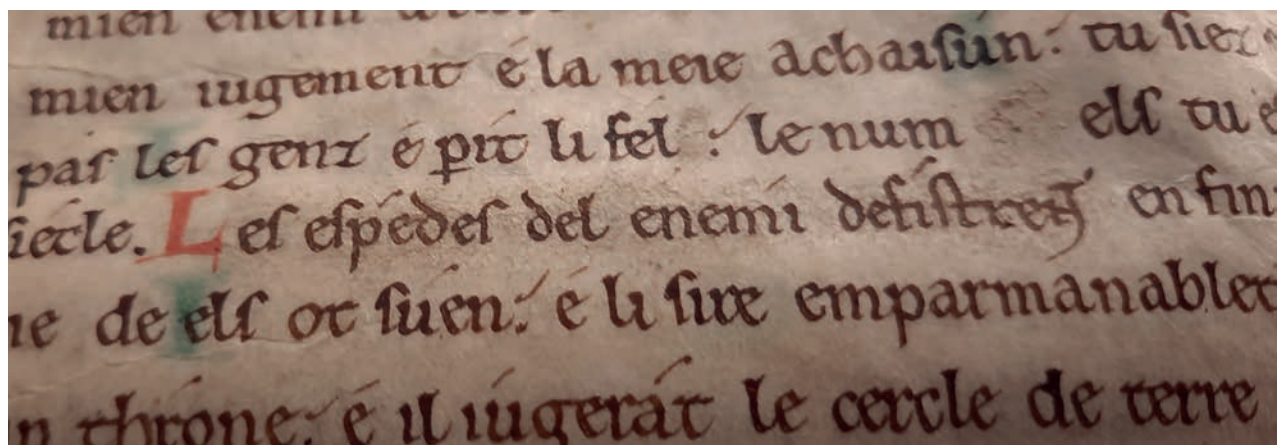 mien enemi
mien iugement é la meie achaisún: tu siez
pas les genz é perit li fel: le num els tu e
siecle. Les espedes del enemi defistrent en fin
ne de els ot suen: é li sire emparmanablet
n thróne: é il iúgerát le cercle de terre